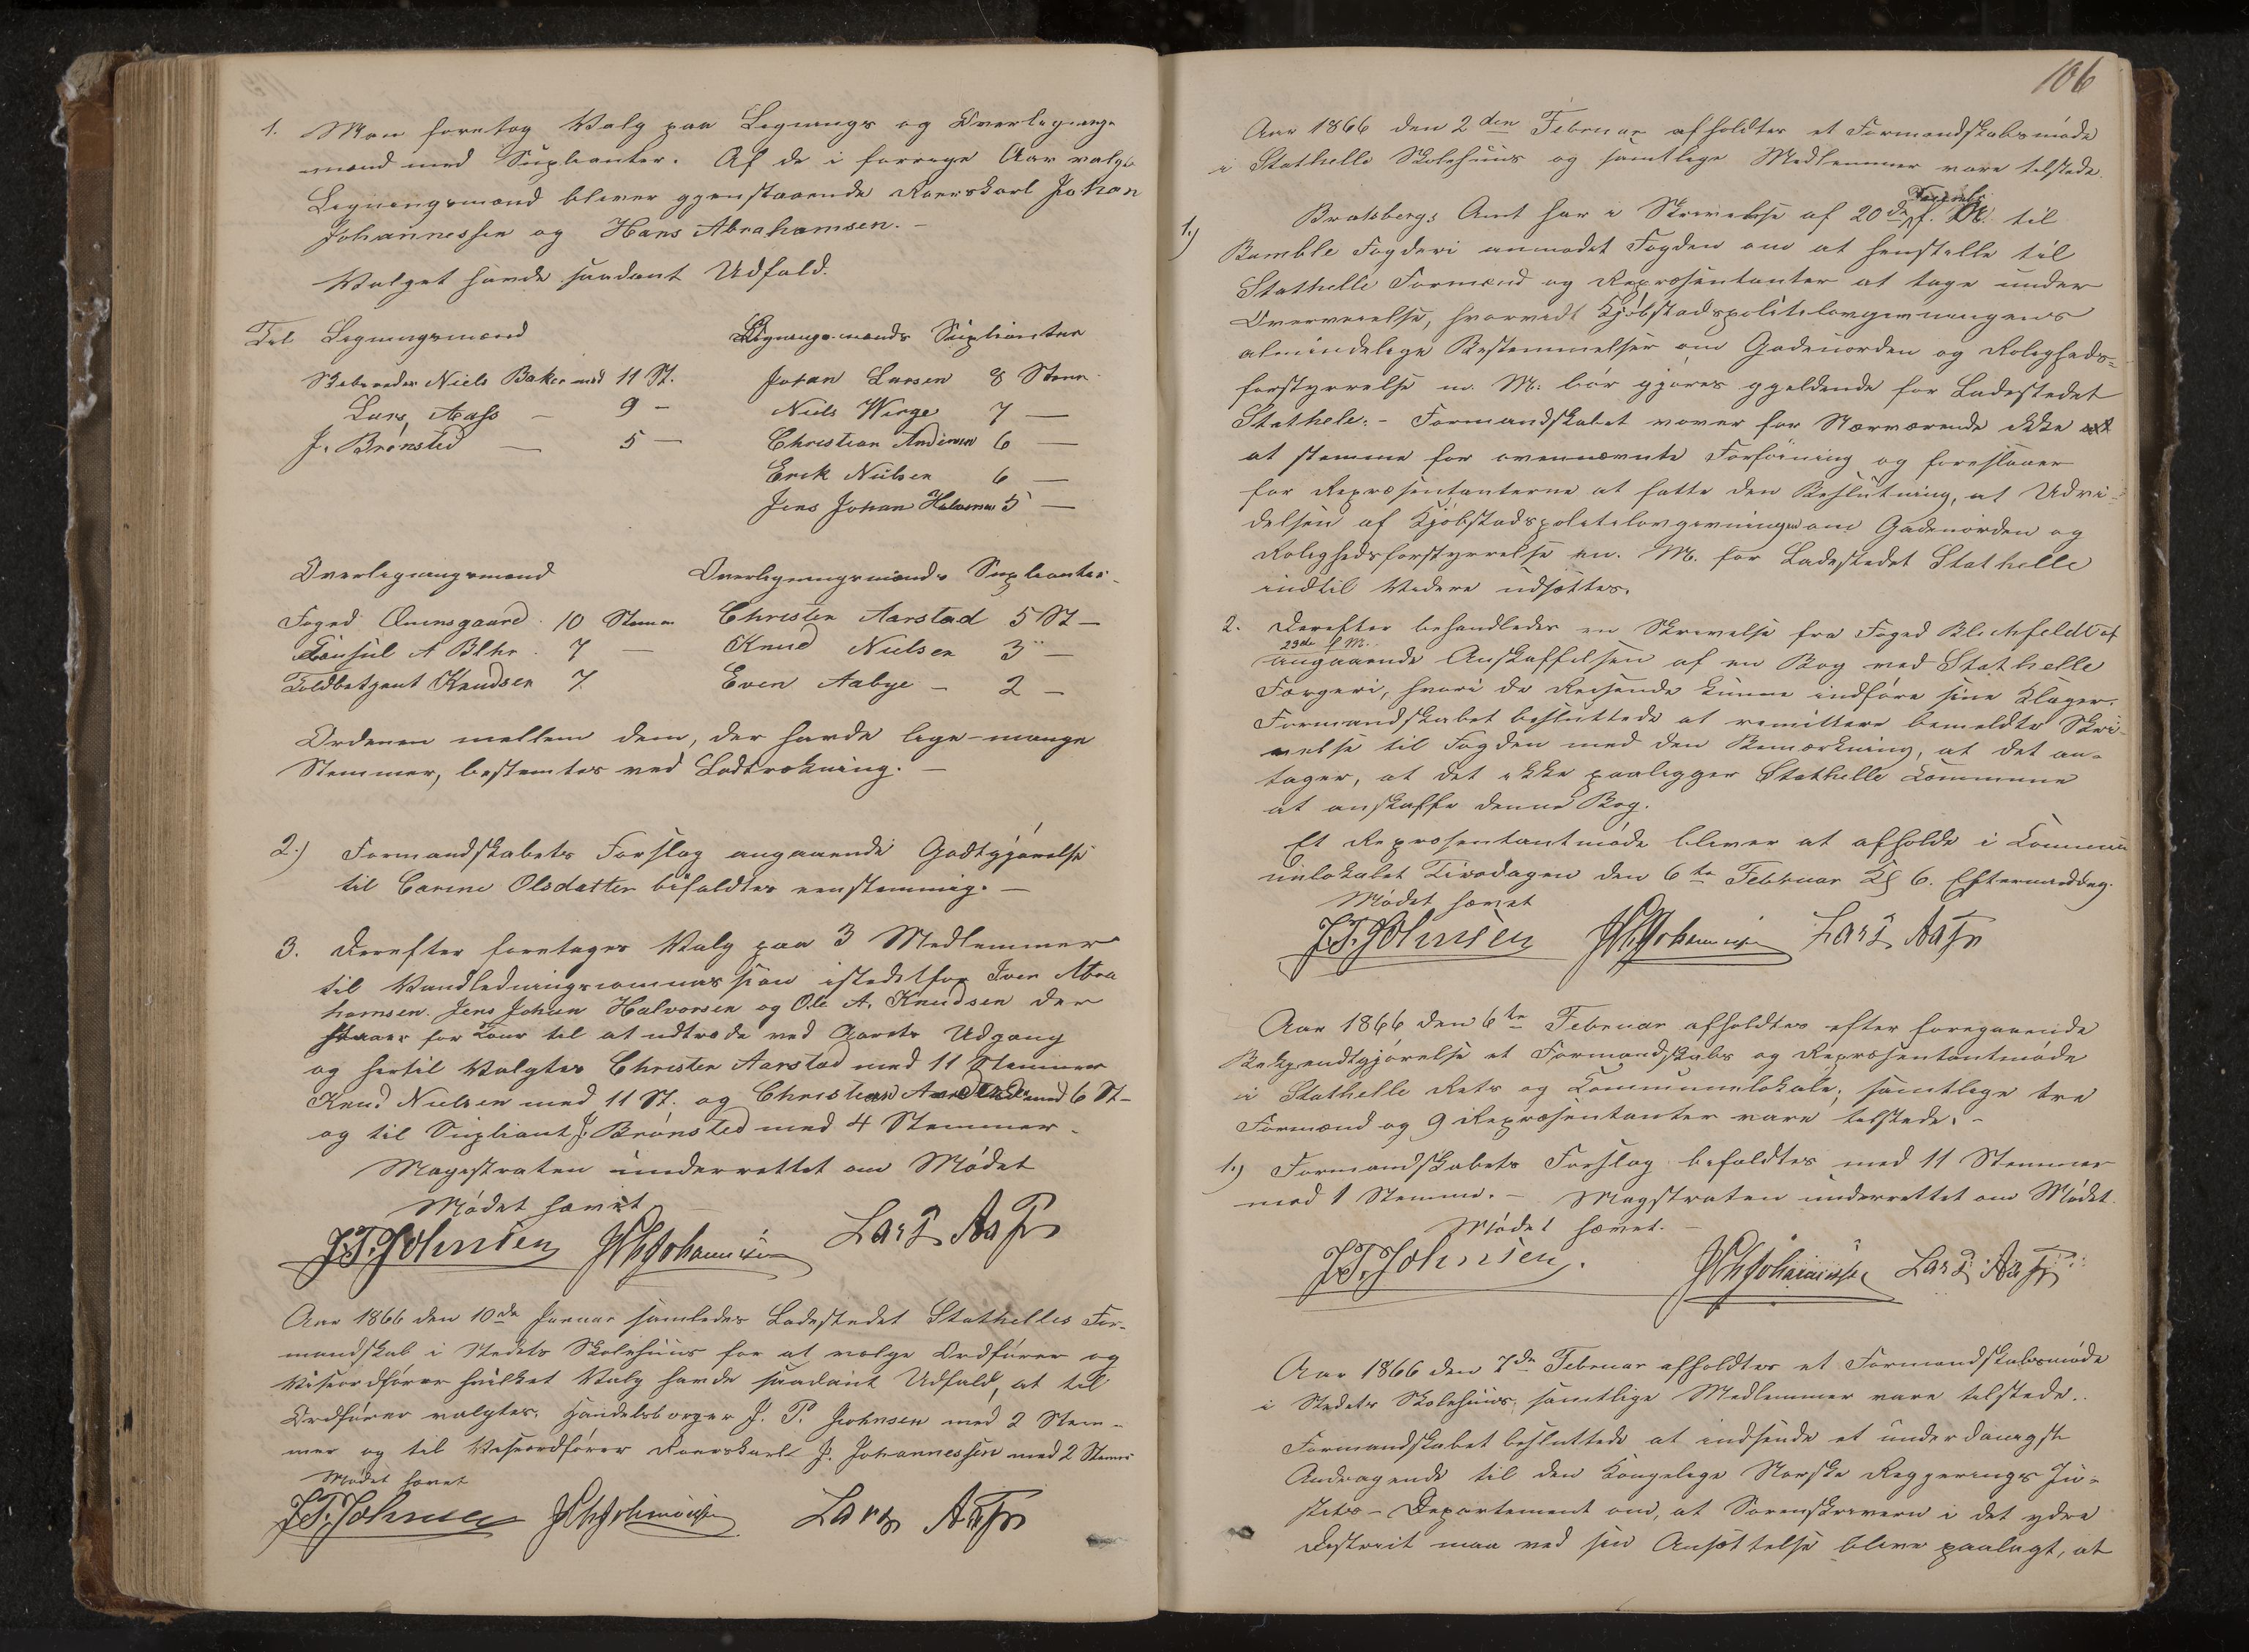 1. Man foretog Valg paa Lignings og Overlignings
mænd med Suplianter. Af de i forrige Aar valgte
Ligningsmænd bliver gjenstaaende Værskarl Johan
Johannessen og Hans Abrahamsen. –
Valget havde saadant Udfald.
Til Ligningsmænd
Skibsreder Niels Baker med 11 St.
Lars Aass — 9 –
J. Brønsted — 5 —
Ligningsmænds Suplianter
Johan Larsen 8 Stemr
Niels Wirge 7 —
Christian Andersen 6 —
Erik Nielsen 6 —
Jens Johan Halvorsen 5 —
Overligningsmænd
Foged 10 Stemmer
Consul A Blhr. 7 —
Toldbetjent Knudsen 7.
Overligningsmænds Suplianter.
Christen Aarstad 5 St –
Knud Nielsen 3 –
Even Aabye – 2 –
Ordenen mellem dem, der havde lige mange
Stemmer, bestemtes ved Lodtrækning. –
2.) Formandskabets Forslag angaaende Godtgjørelse
til Carine Olsdatter bifaldtes eenstemmig. –
3. Derefter foretoges Valg paa 3 Medlemmer
til Vandledningscommission istedetfor Iver Abra
hamsen. Jens Johan Halvorsen og Ole A. Knudsen der
staaer for Tour til at udtræde ved Aarets Udgang
og hertil Valgtes Christen Aarstad med 11 Stemmer
Knud Nielsen med 11 St. og Christian Andersen med 6 St –
og til Supliant J. Brønsted med 4 Stemmer.
Magistraten underrettet om Mødet
Mødet hævet
J.T. Johnsen J Johannessen Lars Aass
Aar 1866 den 10de Januar samledes Ladestedet Stathelles For-
mandskab i Stedets Skolehuus for at vælge Ordfører og
Viseordfører hvilket Valg havde saadant Udfald, at til
Ordfører valgtes. Handelsborger J. T. Johnsen med 2 Stem-
mer og til Viseordfører Værskarl J. Johannessen med 2 Stemr
Mødet hævet
J.T. Johnsen J Johannessen Lars Aass
106
Aar 1866 den 2den Februar afholdtes et Formandskabsmøde
i Stathelle Skolehuus og samtlige Medlemmer vare tilstede.
1.) Bratsbergs Amt har i Skrivelse af 20de f. M. til
Bamble Fogderi anmodet Fogden om at henstille til
Stathelle Formænd og Repræsentanter at tage under
Overveielse, hvorvidt Kjøbstadspolitilovgivningens
almindelige Bestemmelser om Gadeuorden og Roligheds-
forstyrrelse m. M. bør gjøres gjeldende for Ladestedet
Stathele. – Formandskabet vover for Nærværende ikke
at stemme for ovennævnte Forføining og foreslaaer
for Repræsentanterne at fatte den Beslutning, at Udvi-
delsen af Kjøbstadspolitilovgivningen om Gadeuorden og
Rolighedsforstyrrelse m. M. for Ladestedet Stathelle
indtil Videre udsættes.
2. Derefter behandledes en Skrivelse fra Foged Blichfeldt af
23de f M.
angaaende Anskaffelsen af en Bog ved Stathelle
Færgeri, hvori de Reisende kunne indføre sine Klager.
Formandskabet besluttede at remittere bemeldte Skri-
velse til Fogden med den Bemærkning, at det an-
tager, at det ikke paaligger Stathelle Commune
at anskaffe denne Bog.
Et Repræsentantmøde bliver at afholde i Commu
nelokalet Tirsdagen den 6te Februar Kl 6. Eftermiddag.
Mødet hævet
J.T. Johnsen J Johannessen Lars Aass
Aar 1866 den 6te Februar afholdtes efter foregaaende
Bekjendtgjørelse et Formandskabs og Repræsentantmøde
i Stathelle Rets og Communelokale; samtlige tre
Formænd og 9 Repræsentanter vare tilstede. –
1.) Formandskabets Forslag bifaldtes med 11 Stemmer
mod 1 Stemme. – Magistraten underrettet om Mødet.
Mødet hævet. –
J.T. Johnsen. J Johannessen Lars Aass
Aar 1866 den 7de Februar afholdtes et Formandskabsmøde
i Stedets Skolehuus; samtlige Medlemmer vare tilstede.
Formandskabet besluttede at indsende et underdanigst
Andragende til den Kongelige Norske Regjerings Ju-
stits – Departement om, at Sorenskriveren i det ydre
Distrikt maa ved sin Ansættelse blive paalagt, at